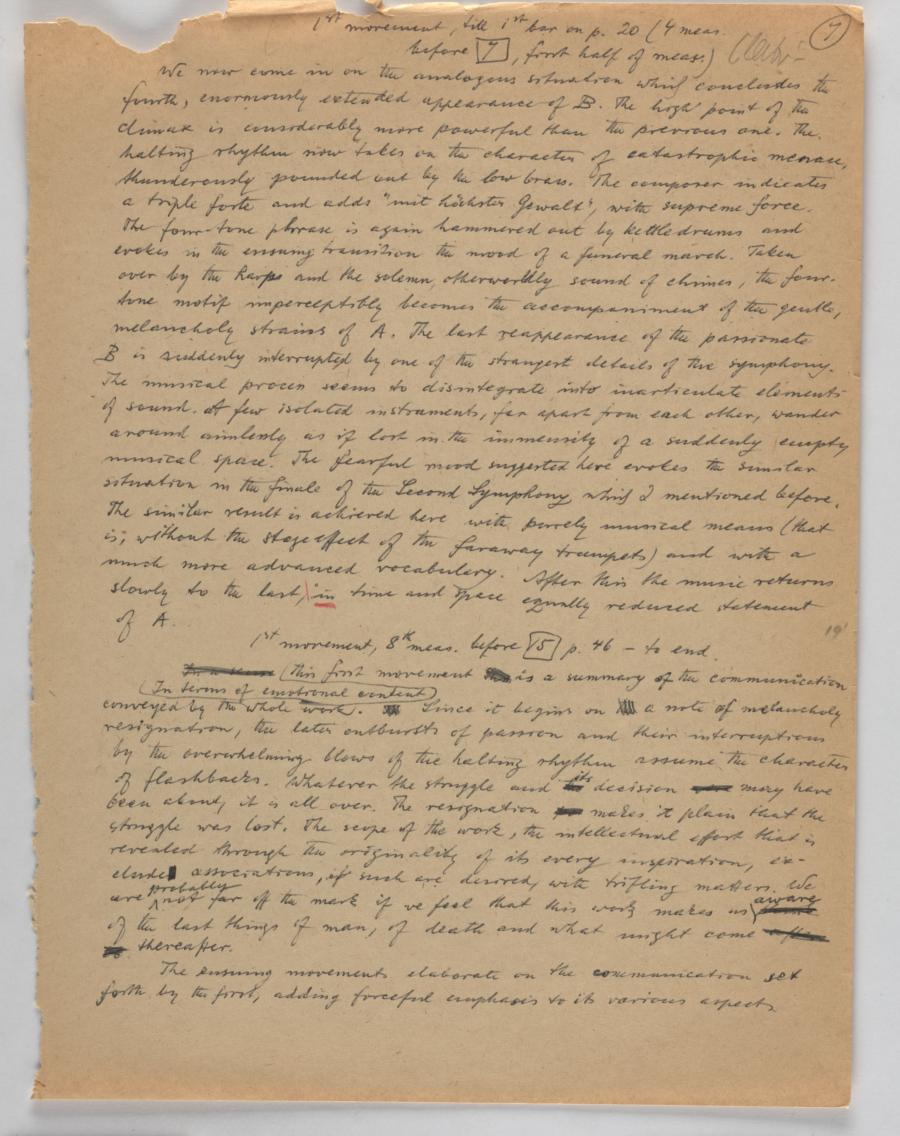 7
1st movement, till 1st bar on p. 20 (4 meas.
before 7, first half of meas.)
We now come in on the analogous situation which concludes the
fourth, enormously extended appearance of B. The high point of the
climax is considerably more powerful than the previous one. The
halting rhythm now takes on the character of catastrophic menace,
thunderously pounded out by the low brass. The composer indicates
a triple forte and adds "mit höchster Gewalt", with supreme force.
The four-tone phrase is again hammered out by kettledrums and
evokes in the ensuing transition the mood of a funeral march. Taken
over by the harps and the solemn, otherworldly sound of chimes, the four-
tone motif imperceptibly becomes the accompaniment of the gentle,
melancholy strains of A. The last reappearance of the passionate
B is suddenly interrupted by one of the strangest details of the symphony.
The musical process seems to disintegrate into inarticulate elements
of sound. A few isolated instruments, far apart from each other, wander
around aimlessly as if lost in the immensity of a suddenly empty
musical space. The fearful mood suggested here evokes the similar
situation in the finale of the Second Symphony, which I mentioned before.
The similar result is achieved here with purely musical means (that
is, without the stage effect of the faraway trumpets) and with a
much more advanced vocabulary. After this the music returns
slowly to the last, in time and space equally reduced statement
of A.
19'
1st movement, 8th meas. before 15 p. 46 – to end.
(this first movement is a summary of the communication
(In terms of emotional content)
conveyed by the whole work. Since it begins on a note of melancholy
resignation, the later outbursts of passion and their interruptions
by the overwhelming blows of the halting rhythm assume the character
of flashbacks. Whatever the struggle and its decision may have
been about, it is all over. The resignation makes it plain that the
struggle was lost. The scope of the work, the intellectual effort that is
revealed through the originality of its every inspiration, ex-
clude associations, if such are desired, with trifling matters. We
are probably not far off the mark if we feel that this work makes us aware
of the last things of man, of death and what might come
thereafter.
The ensuing movements elaborate on the communication set
forth by the first, adding forceful emphasis to its various aspects.